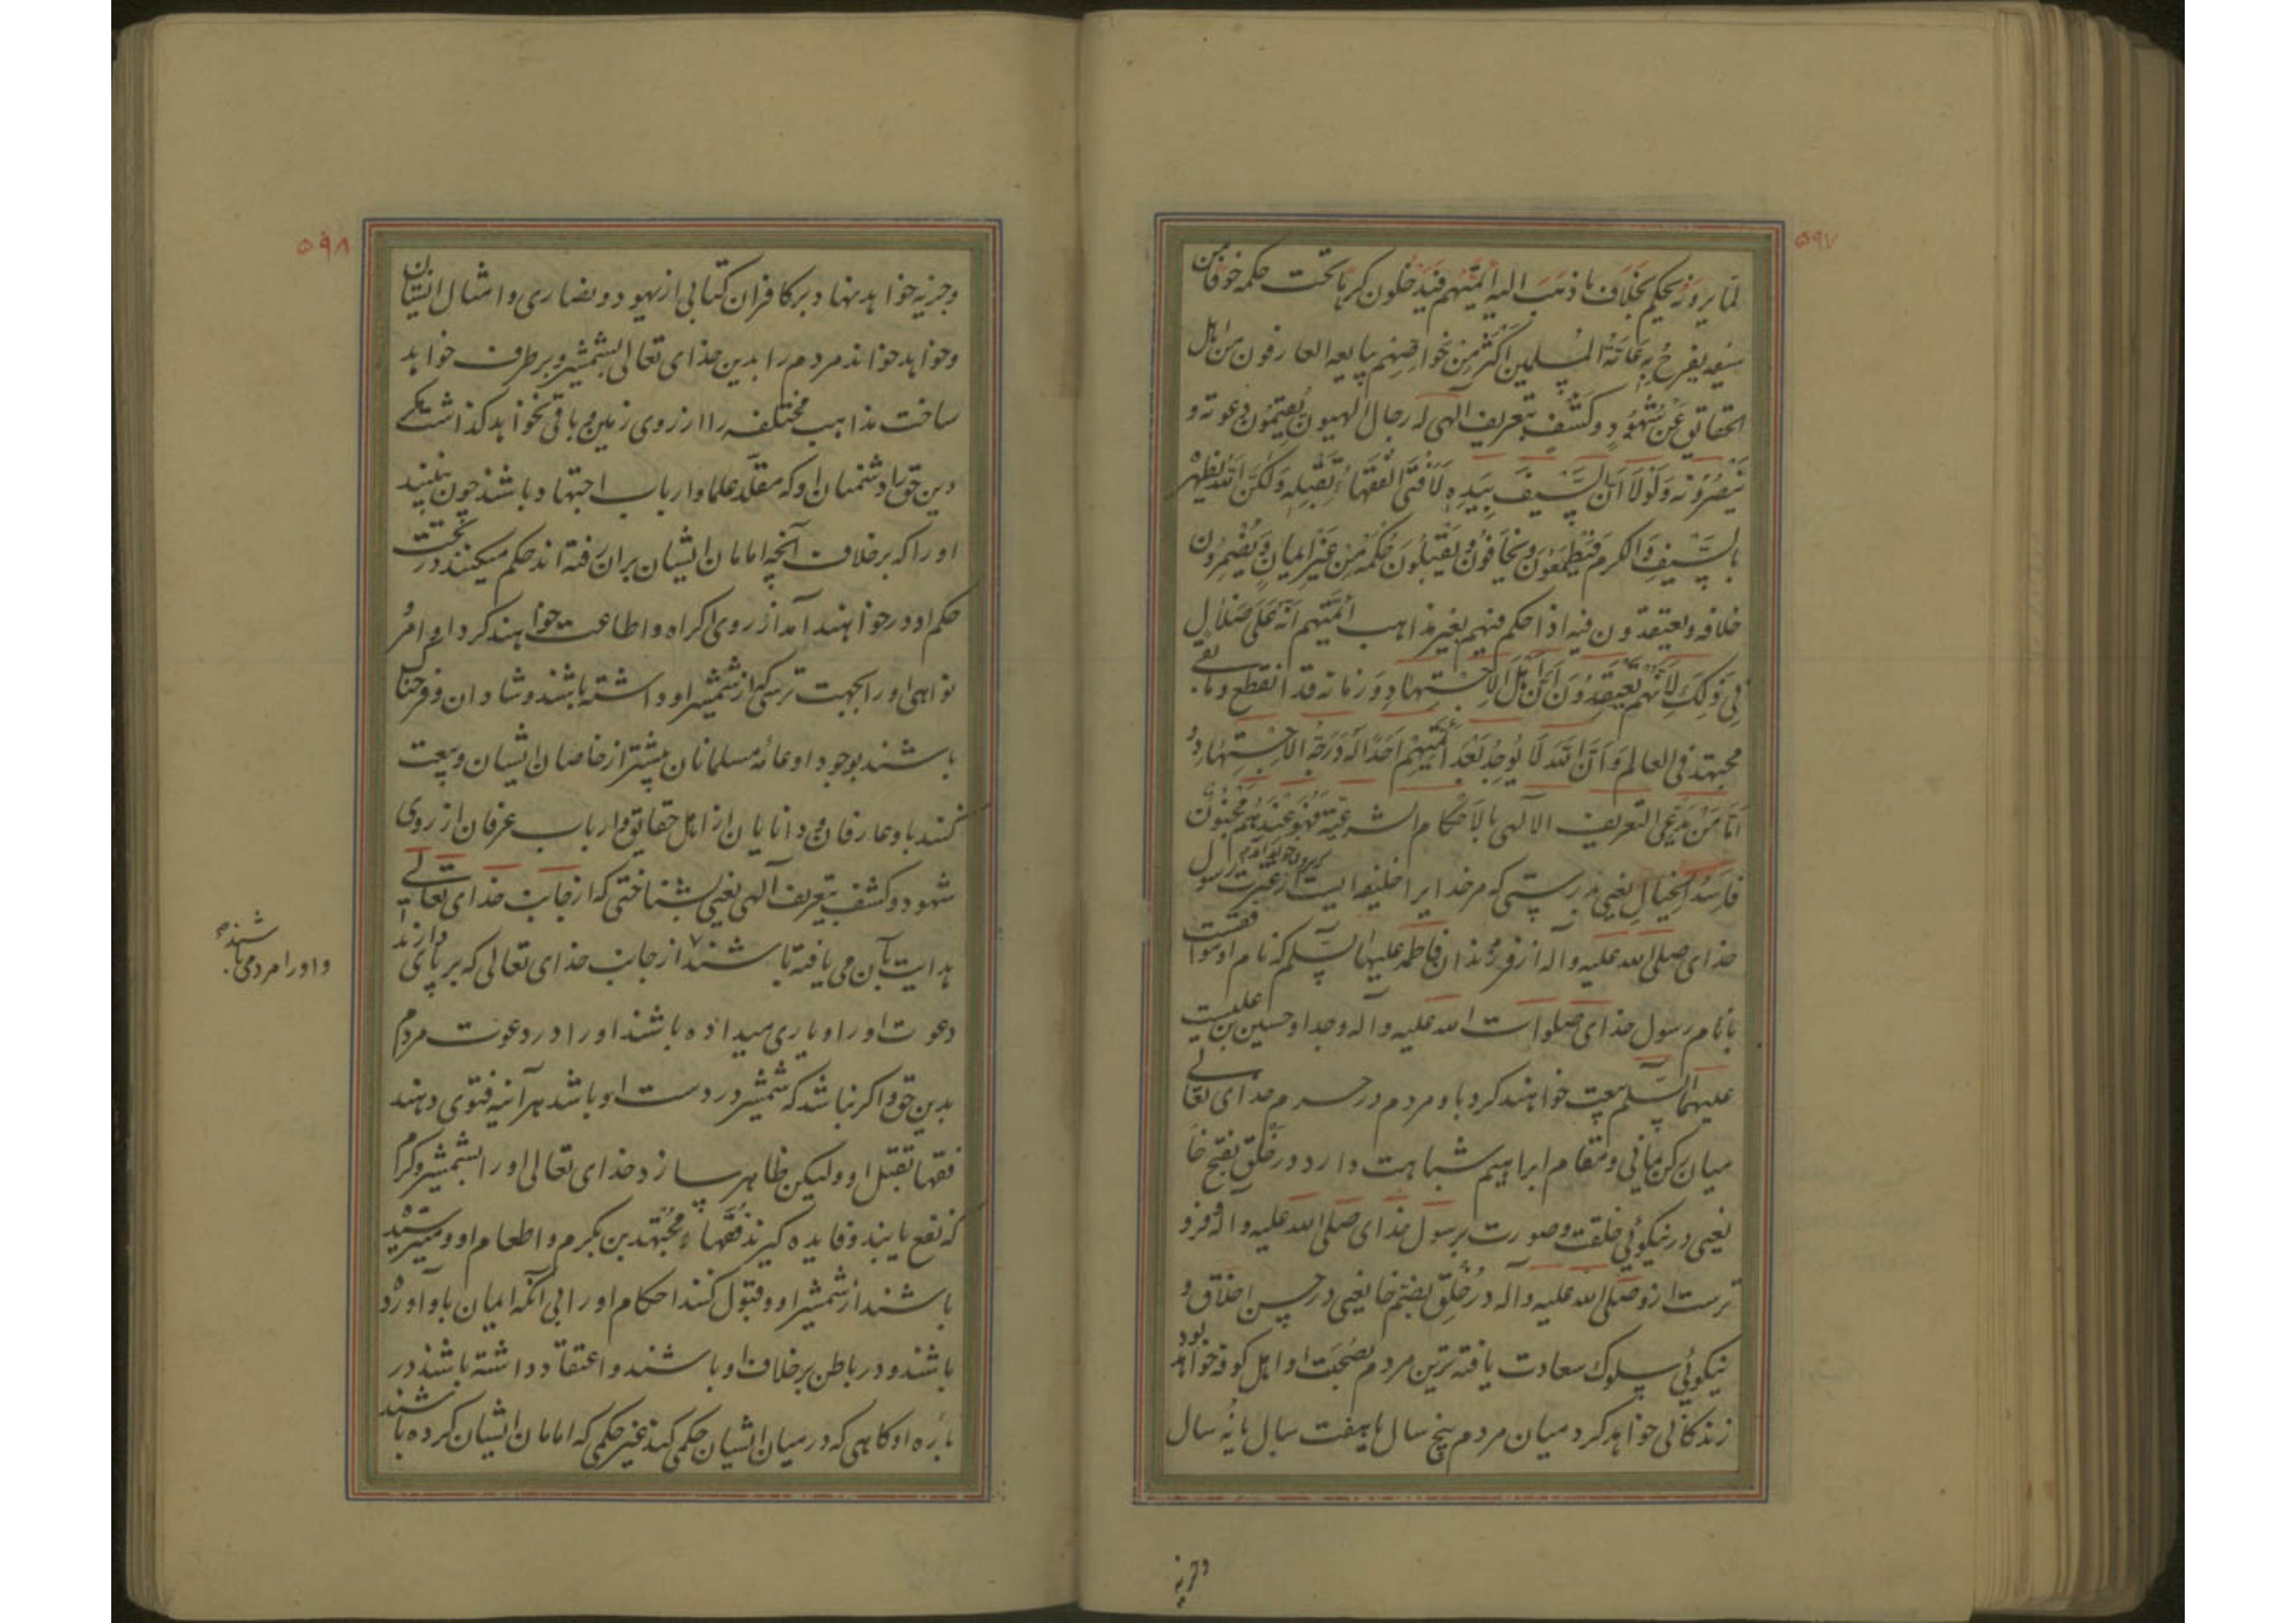 ۵۹۷
لما یرونه یحکم بخلاف ما ذهب الیه ائمتهم فیدخلون کرها تحت حکمه خوفا من
یفرح به عامة المسلمین اکثر من خواصهم یبایعه العارفون من اهل
الحقائق عن شهود و کشف بتعریف الهی له رجال الهیون یقیمون دعوته و
ینصرونه وَلَولا اَنّ السّیفَ بِیَدِه لَاَفتی الفقهاءُ بِقَتلِه وَلکنّ اللّه یظهره
بالسَّیفِ وَالکرم فَیَطمَعُون ویَخافُون وَیَقبَلُونَ حُکمَه مِن غَیرِ ایمانٍ وَیُضمِرُون
خلافه ویعتقدون فیه اذا حکم فیهم بغیر مذاهب ائمّتهم انّه علی ضلال
فِی ذلِکَ لِاَنّهم یَعتقِدُونَ اَنّ اَهلَ الاِجتِهاد وَزمانه قد انقطع وما بقی
مجتهد فی العالم وَاَنّ اللّه لا یُوجِدُ بَعدَ ائمّتِهِم اَحَدًا لَه دَرَجَةُ الاِجتِهاد وَ
اَمّا مَن یَدّعی التعریف الالهی بالاَحکام الشرعیّة فهو عِندَهُم مَجنُون
فاسدُ الخیالِ یعنی بدرستی که مر خدایرا خلیفه ایست بیرون خواهد آمد از عترت رسول
خدای صلی الله علیه وآله از فرزندان فاطمه علیها السّلم که نام او موافقست
با نام رسول خدای صلوات الله علیه وآله وجد او حسین بن علیست
علیهما السّلم بیعت خواهند کرد با او مردم در حرم خدای تعالی
میان رکن یمانی و مقام ابراهیم شباهت دارد در خَلق بفتح خا
یعنی در نیکوئی خلقت و صورت برسول خدای صلی الله علیه وآله و فرو
ترست ازو صلی الله علیه وآله در خُلق بضم خا یعنی در حسن اخلاق و
نیکوئی سلوک سعادت یافته ترین مردم بصحبت او اهل کوفه خواهد بود
زندگانی خواهد کرد میان مردم پنج سال یا هفت سال یا نُه سال
وجزیه
۵۹۸
وجزیه خواهد نهاد بر کافران کتابی از یهود و نصاری و امثال ایشان
وخواهد خواند مردم را بدین خدای تعالی بشمشیر و برطرف خواهد
ساخت مذاهب مختلفه را از روی زمین و باقی نخواهد گذاشت مگر
دین حق را دشمنان او که مقلّد علما و ارباب اجتهاد باشند چون ببینند
اورا که برخلاف آنچه امامان ایشان بران رفته اند حکم میکنند در تحت
حکم او درخواهند آمد از روی اکراه و اطاعت خواهند کرد اوامر و
نواهی اورا بجهت ترسی که از شمشیر او داشته باشند و شادان و فرحناک
باشند بوجود او عامهٔ مسلمانان بیشتر از خاصان ایشان و بیعت
کنند با و عارفان و دانایان از اهل حقایق و ارباب عرفان از روی
شهود و کشف بتعریف الهی یعنی بشناختی که از جانب خدای تعالی
هدایت بآن می یافته باشند از جانب خدای تعالی که بر پای دارند
واورا مردمی باشند
دعوت اورا و یاری میداده باشند اورا در دعوت مردم
بدین حق و اکر نباشد که شمشیر در دست او باشد هر آینه فتوی دهند
فقها بقتل او ولیکن ظاهر سازد خدای تعالی اورا بشمشیر و کرم
که نفع یابند و فایده گیرند فقهاء مجتهدین بکرم و اطعام او و
باشند از شمشیر او و قبول کنند احکام اورا بی آنکه ایمان باو آورده
باشند و در باطن برخلاف او باشند و اعتقاد داشته باشند در
بارهٔ او کاهی که در میان ایشان حکمی کند غیر حکمی که امامان ایشان کرده باشند